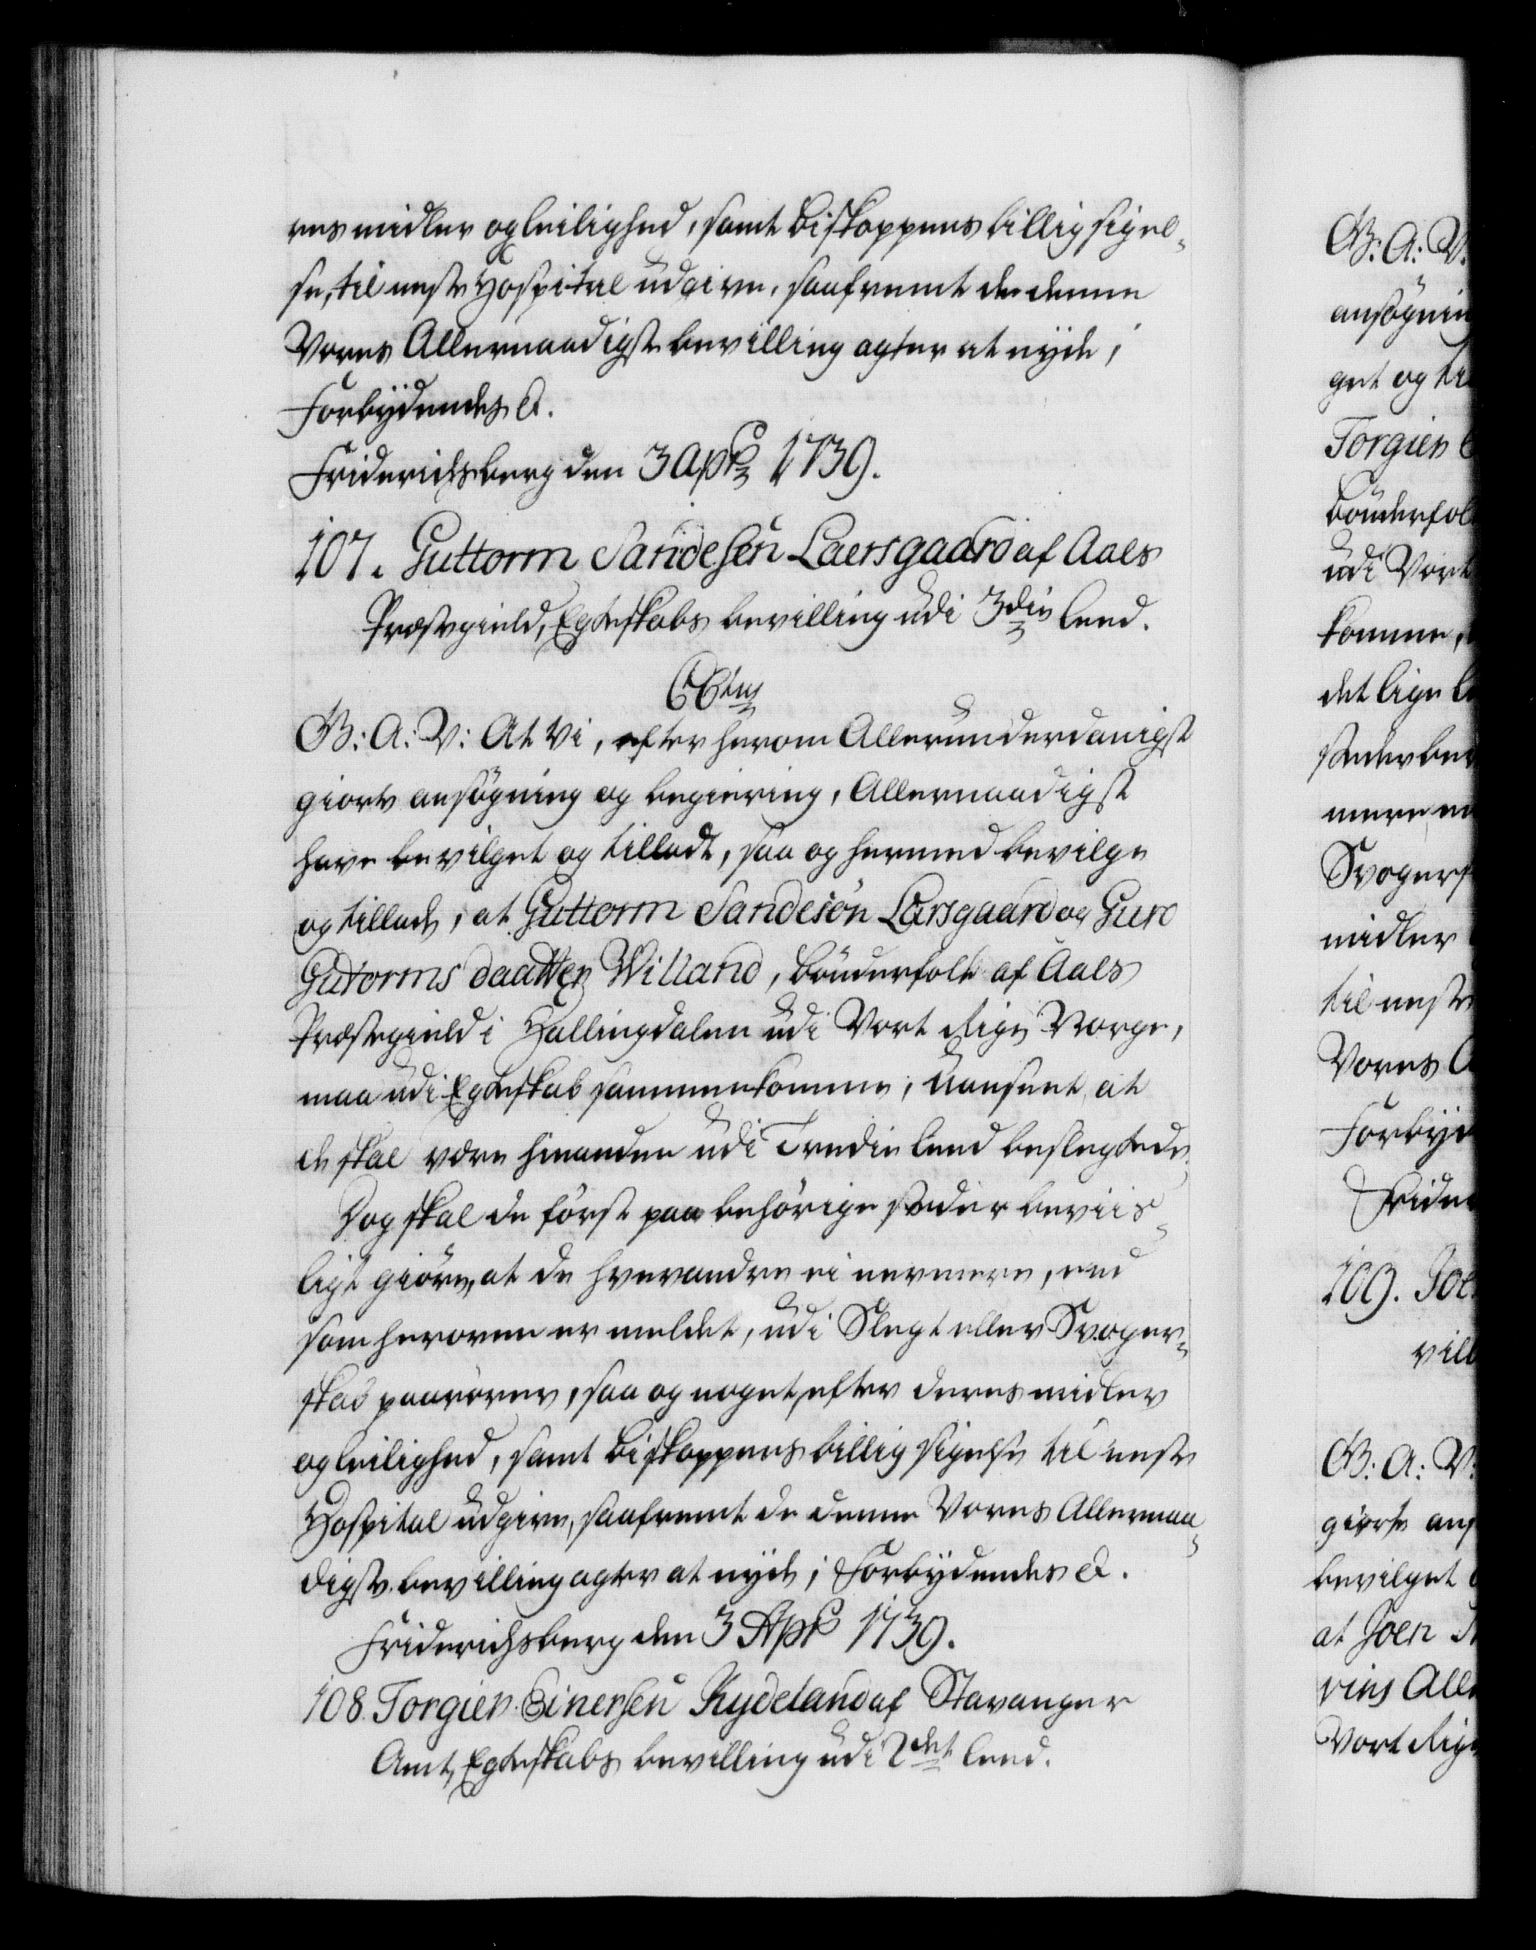 res midler og leilighed, samt Biskoppens billig sigel-
se, til neste Hospital udgive, saafremt de denne
Vores Allernaadigste bevilling agter at nyde;
Forbydendes &.
Friderichsberg den 3 Apr: 1739.
107. Guttorm Sandesen Laersgaard af Aals
Præstegield, Egteskabs bevilling udi 3die leed.
C6tus
G: A: V: At Vi, efter herom Allerunderdanigst
giorte ansøgning og begiering, Allernaadigst
have bevilget og tilladt, saa og hermed bevilge
og tillade, at Guttorm Sandesøn Larsgaard og Guro
Gutorms daatter Willand, bønderfolk af Aals
Præstegield i Hallingdalen udi Vort Rige Norge,
maa udi Egteskab sammenkomme, Uanseet, at
de skal være hinanden udi Tredie leed beslegtede.
Dog skal de først paa behörige steder beviis-
ligt giøre, at de hverandre ei nermere, end
som heroven er meldet, udi Slegt eller Svoger-
skab paarører, saa og noget, efter deres midler
og leilighed, samt Biskoppens billig sigelse til neste
Hospital udgive, saafremt de denne Vores Allernaa-
digste bevilling agter at nyde; Forbydendes &.
Friderichsberg den 3 Apr: 1739.
108. Torgier Einersen Rydeland af Stavanger
Amt, Egteskabs bevilling udi 2det leed.
G: A: V.
ansøgnin
get og til
Torgien E
bönderfol
udi Vort
komme,
det lige le
stederbev
mere en
Svogers
midler
til neste
Vores A
Forbyd
Frider
109. Joe
vill
G: A: V:
giorte ans
bevilget
at Joen
rins All
Vort Rige